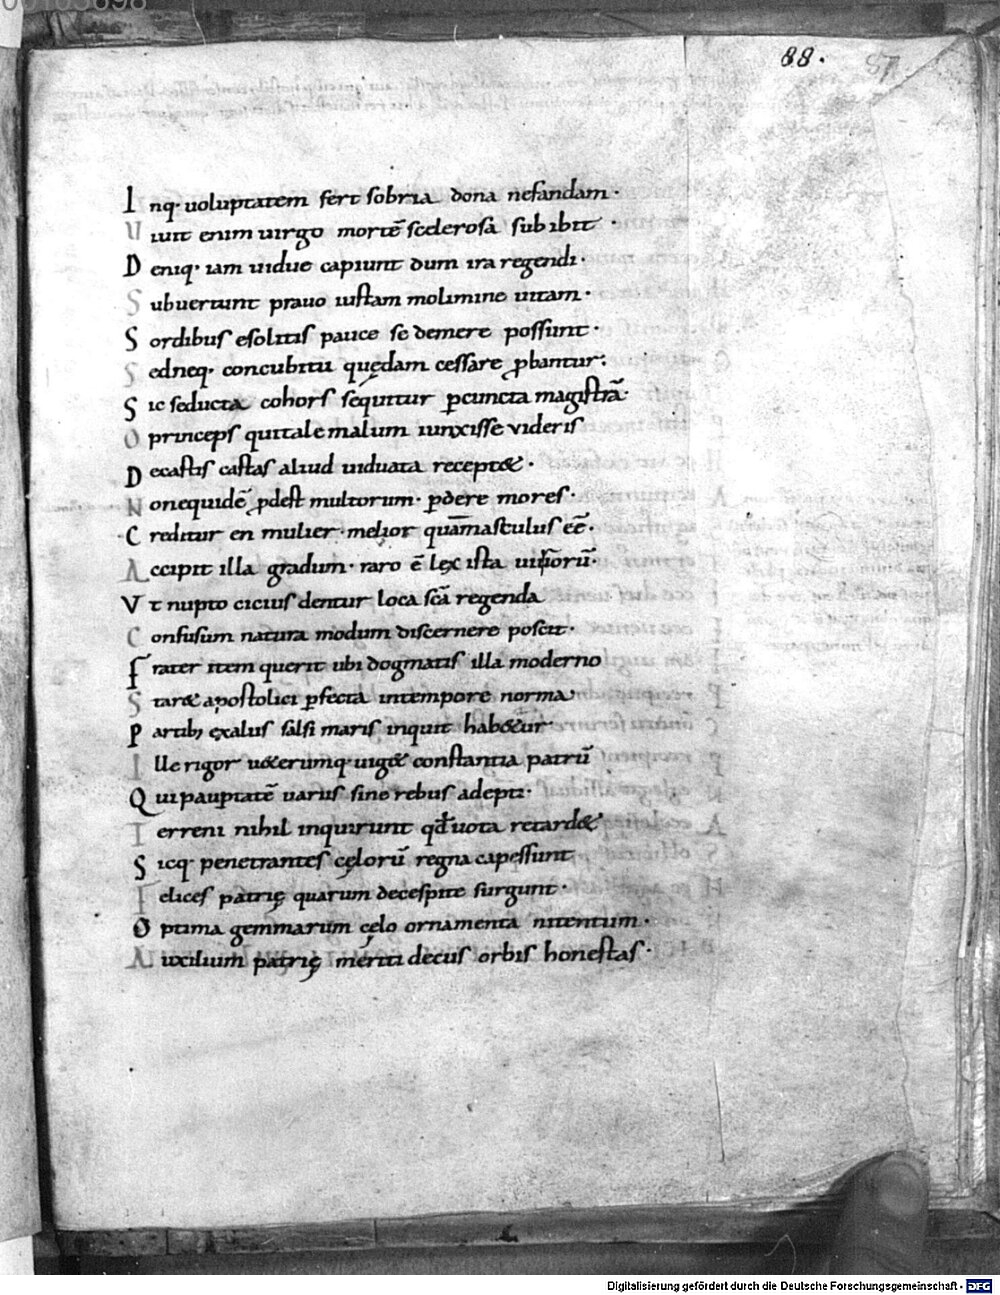 00103098
88. 87
Inq· uoluptatem fert sobria dona nefandam·
Uiuit enim uirgo mortē scelerosā subibit·
Deniq· iam uidue capiunt dum ira regendi·
Subuertunt prauo iustam molimine uitam·
Sordibus esolitis pauce se demere possunt·
Sedneq· concubitu quędam cessare ꝓbantur·
Sic seducta cohors sequitur ꝑcuncta magistrā·
O princeps qui tale malum iunxisse videris
Decastis castas aliud uiduata recept&·
Nonequidē ꝓdest multorum· ꝑdere mores·
Creditur en mulier· melior quāmasculus eē
Accipit illa gradum· raro ē lex ista uirorū·
Vt nupto cicius dentur loca scā regenda
Confusum natura modum discernere poscit·
Frater item querit ubi dogmatis illa moderno
Star& apostolici ꝑfecta intempore norma
Partib; exalus salsi maris inquit hab&ur
Ille rigor u&erumq· uig& constantia patrū
Qui pauꝑtatē uarus sine rebus adepti·
Terreni nihil inquirunt qđ uota retard&
Sicq· penetrantes cęlorū regna capessunt
Felices patrię quarum decespite surgunt·
Optima gemmarum cęlo ornamenta nitentum·
Auxilium patrię meriti decus orbis honestas·
Digitalisierung gefördert durch die Deutsche Forschungsgemeinschaft - DFG